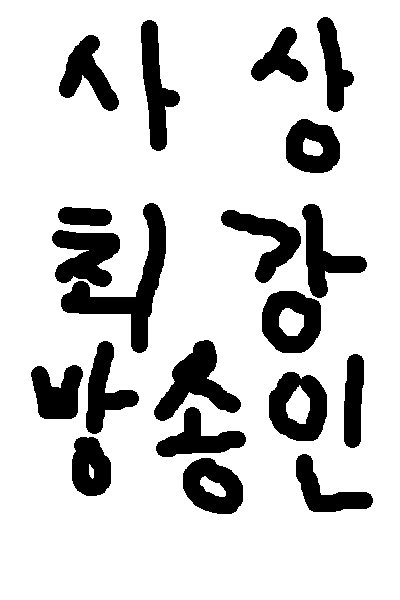 사상
최강
방송인